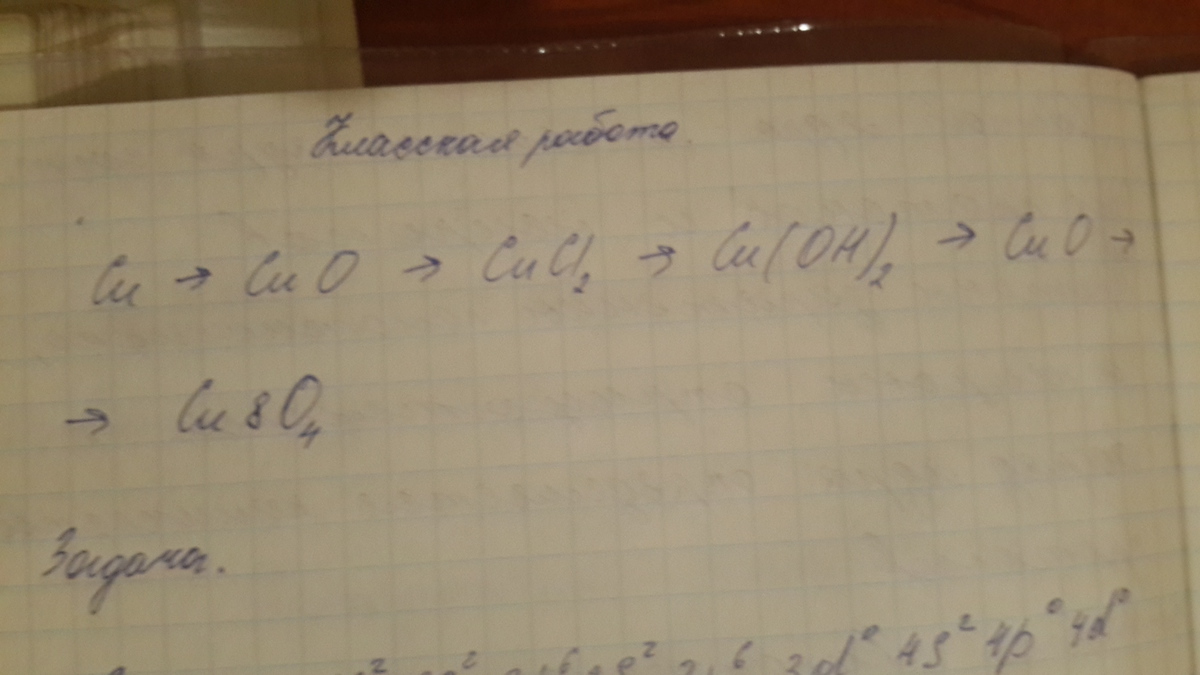 Классная работа.
Cu → CuO → CuCl₂ → Cu(OH)₂ → CuO →
→ CuSO₄
Задача.
3d⁰ 4s² 4p⁰ 4d⁰